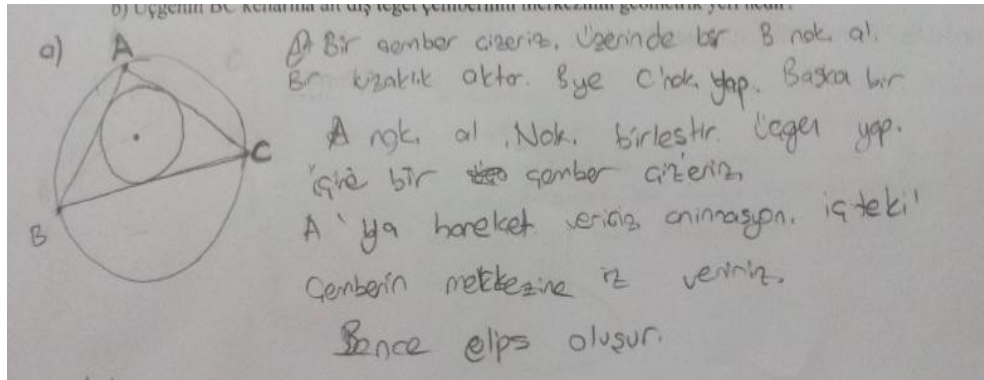 b) Üçgenin BC kenarına ait dış teğet çemberinin merkezinin geometrik yeri nedir?
a) A Bir çember çizeriz. Üzerinde bir B nok. al.
Bir uzaklık aktar. B'ye C nok. yap. Başka bir
A nok. al. Nok. birleştir. Üçgen yap.
içine bir çember çizeriz.
A'ya hareket veririz animasyon. içteki
Çemberin merkezine iz veririz.
Bence elips oluşur.
C
B